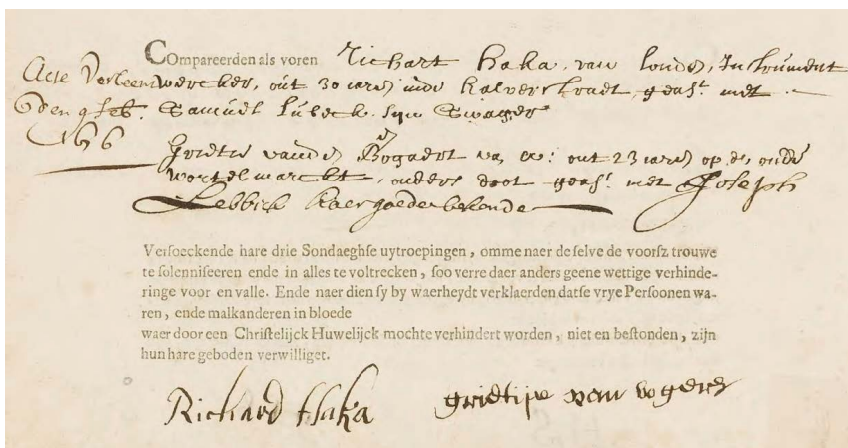 Compareerden als voren Richart Haka, van londen, Instrument
wercker, out 30 iaren inde kalverstraet, geast. met
Samuel lubeck syn Swager
Acte Verleent
den 9 feb.
Grietie vanden Bogaert van A: out 23 iaren op de, oude
wortelmarckt, ouders doot geast. met Joseph
Lebbick haer goede bekende
Versoeckende hare drie Sondaeghse uytroepingen, omme naer de selve de voorsz trouwe
te solenniseeren ende in alles te voltrecken, soo verre daer anders geene wettige verhinde-
ringe voor en valle. Ende naer dien sy by waerheydt verklaerden datse vrye Persoonen wa-
ren, ende malkanderen in bloede
waer door een Christelijck Huwelijck mochte verhindert worden, niet en bestonden, zijn
hun hare geboden verwilliget.
Richard Haka
grietije van bogert